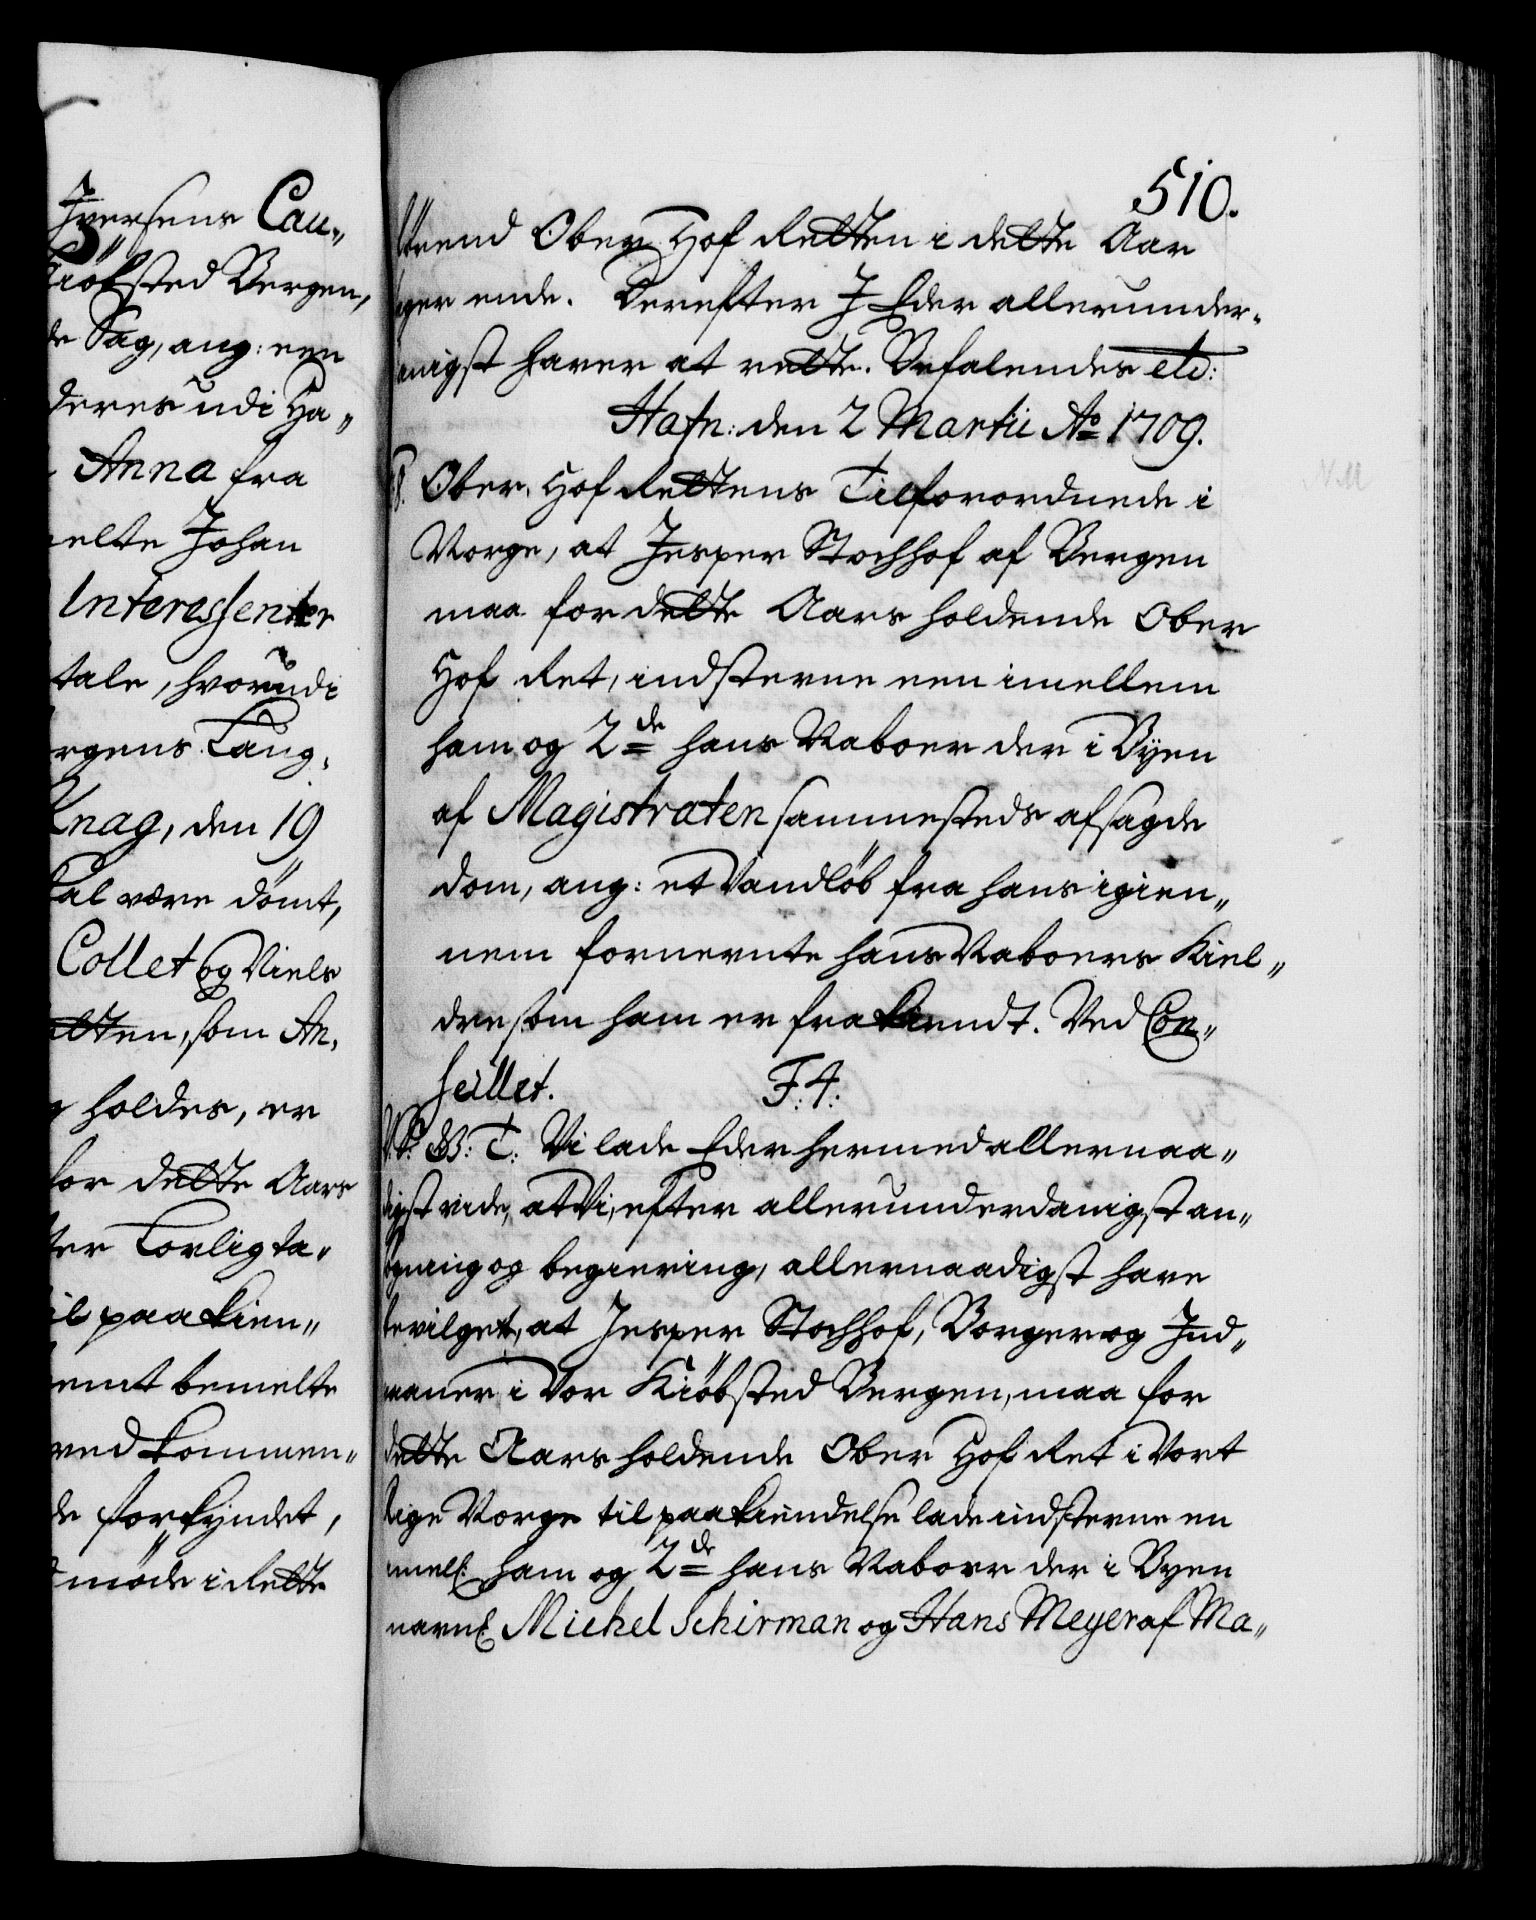 Iversens Cau„
Kiöbsted Bergen,
de Sag, ang: een
deres udi Ha„
Anna fra
melte Johan
Interessenter
tale, hvorudi
rgens Laug,
Knag, den 19
kal være dömt,
Collet og Niels
etten, som An,
holdes, er
for dette Aars
ter Lovlig ta„
il paakien„
emt bemelte
ved kommen„
de forkyndet,
möde i Rette
510.
Ober Hof Retten i dette Aar
ager ende. Derefter I Eder allerunder„
danigst haver at rette. Befalendes etc:
Hafn: den 2 Martii Ao 1709.
T. Ober Hof Rettens Tilforordnede i
Norge, at Jesper Stochhof af Bergen
maa for dette Aars holdende Ober
Hof Ret, indsterne een imellem
ham og 2de hans Naboer der i Byen
af Magistraten sammesteds afsagde
dom, ang: et Vandlöb fra hans igien„
nem fornevnte hans Naboers Kiel„
dre som ham er frakiendt. Ved Con„
seillet. F: 4:
V. G: T: Vi lade Eder hermed allernaa„
digst vide, at Vi, efter allerunderdanigst an„
ögning og begiering, allernaadigst have
bevilget, at Jesper Stochhof, Borger og Ind„
vaaner i Vor Kiöbsted Bergen, maa for
dette Aars holdende Ober Hof Ret i Vort
Rige Norge til paakiendelse lade indsterne en
imell: ham og 2de hans Naboer der i Byen
navnl: Michel Schirman og Hans Meyer af Ma„